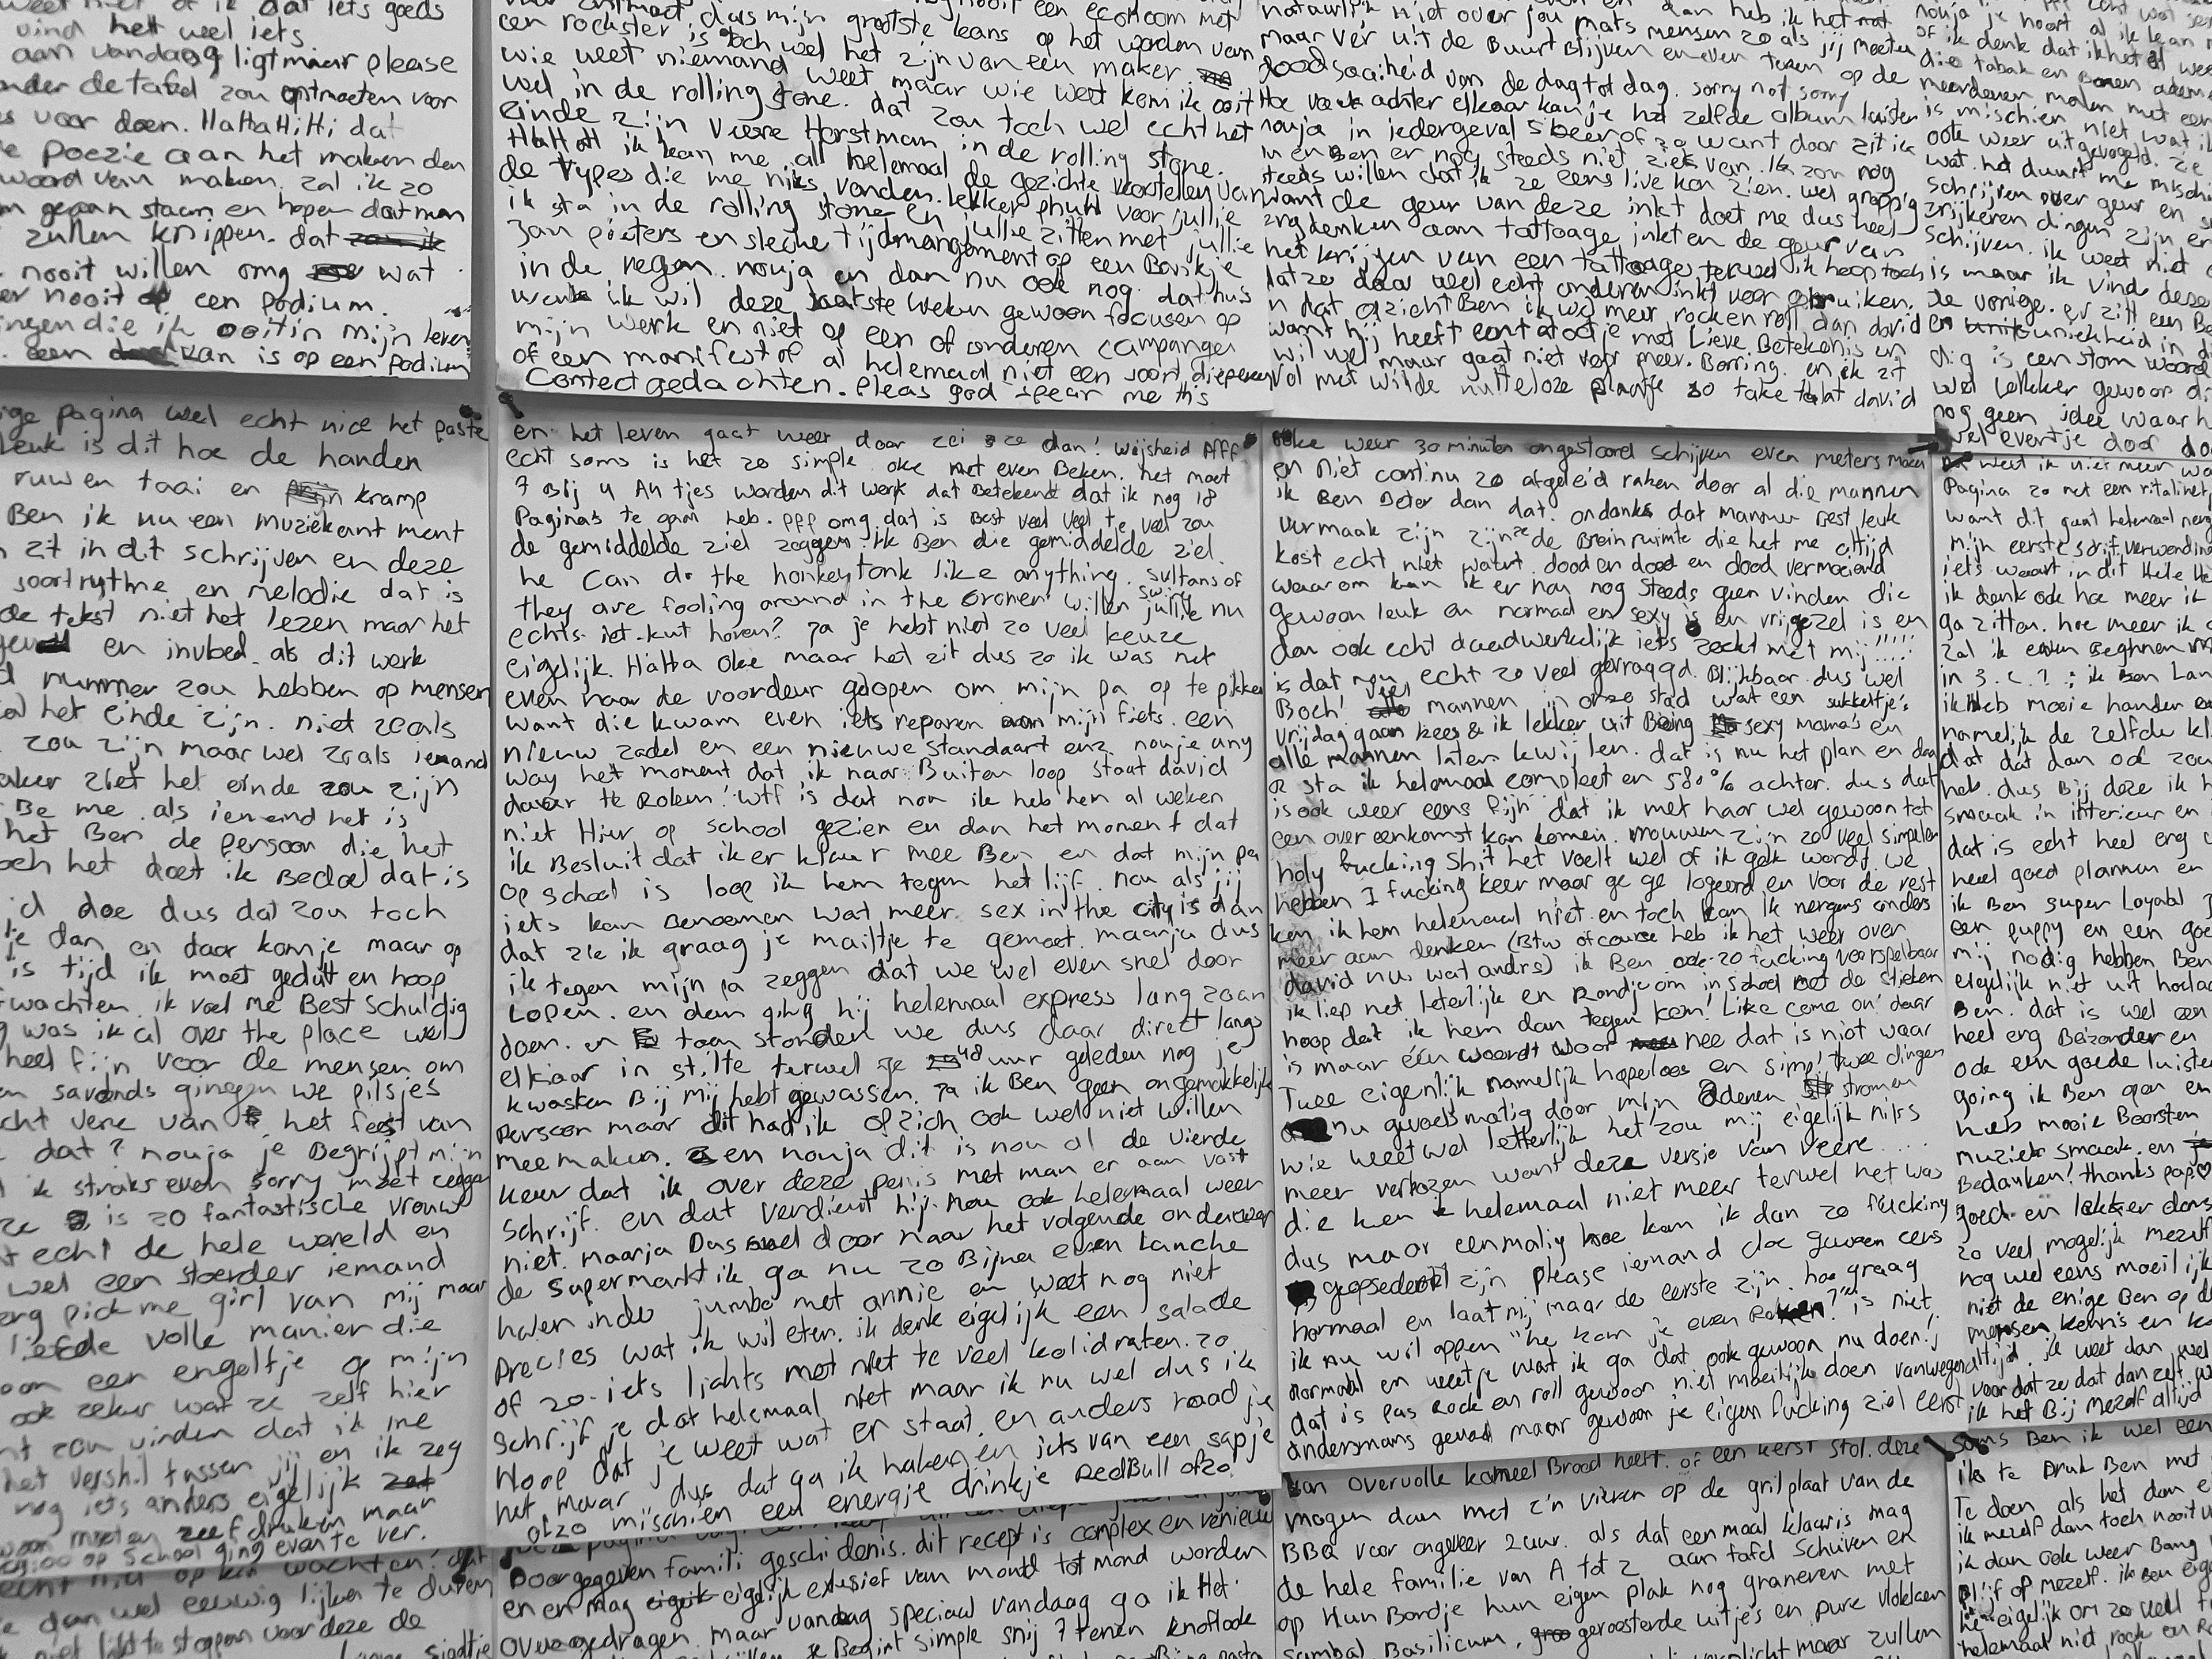 weet niet of ik dat iets goeds
vind het wel iets
aan vandaag ligt maar please
onder de tafel zou ontmoeten voor
voor doen. HaHaHiHi dat
poezie aan het maken den
woord van maken. zal ik zo
gaan staan en hopen dat men
zullen knippen. dat zou ik
nooit willen omg wat
nooit op een podium.
ingen die ik ooit in mijn leven
een kan is op een podium
een rockster is toch wel het
dus mijn grootste kans op het worden van
wie weet niemand weet maar wie weet kom ik ooit
wel in de rolling stone. dat zou toch wel echt het
einde zijn Veere Horstman in de rolling stone.
HaHaH ik kan me al helemaal de gezichte voorstellen van
de types die me niks vonden. lekker phuh voor jullie
ik sta in de rolling stone en jullie zitten met jullie
Jan pieters en slechte tijdmangement op een Bankje
in de regen. nouja en dan nu ook nog dat huis
werk ik wil deze laatste weken gewoon focusen op
mijn werk en niet op een of anderen campange
of een manifest of al helemaal niet een soort diepere
Context gedachten. Pleas god spear me this
natuurlijk niet over jou mats mensen zo als jij moeten
maar ver uit de Buurt Blijven en even teren op de
doodsaaiheid van de dag tot dag. sorry not sorry
Hoe vaak achter elkaar kan je het zelfde album luister
nouja in iedergeval 5 keer of zo want daar zit ik
nu en Ben er nog steeds niet ziek van. Ik zou nog
steeds willen dat ik ze eens live kon zien. wel grappig
want de geur van deze inkt doet me dus heel
erg denken aan tattoage inkt en de geur van
het krijgen van een tattoage terwel ik hoop toch
dat ze daar wel echt anderen inkt voor gebruiken.
n dat opzicht Ben ik wel meer rock en roll dan david
want hij heeft een tatoetje met Lieve Betekenis en
wil wel maar gaat niet voor meer. Borring. en ik zit
vol met wilde nutteloze plaatje so take that david
nouja je hoort al ik kan
of ik denk dat ik het al wee
die tabak en Bonen adem
meerdere malen met een
is mischien niet wat ik
ook weer uitgevogeld. ze
wat. het duurt me misch
schrijven over geur en s
zrijkeren dingen zijn er
schijven. ik weet niet o
is maar ik vind deze
de vorige. er zit een Be
en uniekheid in di
dig is een stom woord
wel lekker gewoon di
nog geen idee waar h
wel eventje door do
ige pagina wel echt nice het paste
leuk is dit hoe de handen
ruw en taai en kramp
Ben ik nu een muziekant ment
zit in dit schrijven en deze
soort rytme en melodie dat is
de tekst niet het lezen maar het
en invloed. als dit werk
nummer zou hebben op mensen
al het einde zijn. niet zoals
zou zijn maar wel zoals iemand
aker ziet het einde zou zijn
Be me. als iemand het is
het Ben de persoon die het
och het doet ik Bedoel dat is
id doe dus dat zou toch
je dan en daar kom je maar op
is tijd ik moet geduld en hoop
fwachten. ik voel me Best schuldig
was ik al over the place wel
heel fijn voor de mensen om
en savonds gingen we pilsjes
echt vere van het feest van
dat? nouja je Begrijpt mijn
ik straks even sorry moet zeggen
ze is zo fantastische vrouw
t echt de hele wereld en
wel een stoerder iemand
erg pick me girl van mij maar
liefde volle manier die
oon een engeltje op mijn
ook zeker wat ze zelf hier
nt zou vinden dat ik me
het vershil tassen jij en ik zeg
nog iets anders eigelijk
woon moeten zeefdruken maar
op school ging even te ver.
en het leven gaat weer door zei ze dan! Wijsheid Pfff
echt soms is het zo simple oke met even Beken. het moet
7 Bij 4 A4tjes worden dit werk dat Betekend dat ik nog 18
Pagina's te gaan heb. pff omg dat is Best veel veel te veel zou
de gemiddelde ziel zeggen. Ik Ben die gemiddelde ziel.
he can do the honkeytonk like anything. sultans of swing
they are fooling around in the cronen willen jullie nu
echts iet-kut horen? Ja je hebt niet zo veel keuze
eigelijk. HaHa Oke maar het zit dus zo ik was net
even naar de voordeur gelopen om mijn pa op te pikken
want die kwam even iets reparen aan mijn fiets. een
nieuw zadel en een nieuwe standaart enz. nouje any
way het moment dat ik naar Buiten loop staat david
daar te Roken! wtf is dat nou ik heb hem al weken
niet Hier op school gezien en dan het moment dat
ik Besluit dat ik er klaar mee Ben en dat mijn pa
op school is loop ik hem tegen het lijf. nou als jij
iets kan Benoemen wat meer sex in the city is dan
dat zie ik graag je mailtje te gemoet. maarja dus
ik tegen mijn pa zeggen dat we wel even snel door
Lopen. en dan ging hij helemaal express langzaan
doen. en toen stonden we dus daar direct langs
elkaar in stilte terwel je 48 uur geleden nog je
kwasten Bij mij hebt gewassen. Ja ik Ben geen ongemakkelijk
Persoon maar dit had ik opzich ook wel niet willen
meemaken. en nouja dit is nou al de vierde
keer dat ik over deze penis met man er aan vast
schrijf. en dat verdient hij nou ook helemaal weer
niet. maarja Dus snel door naar het volgende onderwerp
de supermarkt ik ga nu zo Bijna even lunche
halen inde jumbo met annie en weet nog niet
Precies wat ik wil eten. ik denk eigelijk een salade
of zo-iets lichts met niet te veel kolidraten. zo
schrijf je dat helemaal niet maar ik nu wel dus ik
Hoop dat je weet wat er staat. en anders raad je
het maar dus dat ga ik haken en iets van een sapje
ofzo mischien een energie drinkje RedBull ofzo.
oke weer 30 minuten ongestoord schijven even meters maken
en niet continu zo afgeleid raken door al die mannen
ik Ben Beter dan dat. ondanks dat mannen Best leuk
vermaak zijn zijn ze de Breinruimte die het me altijd
kost echt niet waart. dood en dood en dood vermoeiend
waarom kan ik er nou nog steeds geen vinden die
gewoon leuk en normaal en sexy is en vrijgezel is en
dan ook echt daadwerkelijk iets zoekt met mij!!!!!
is dat nou echt zo veel gevraagd. Blijkbaar dus wel
Boch! veel mannen in onze stad wat een sukkeltje's
Vrijdag gaan Kees & ik lekker uit Being sexy mama's en
alle mannen laten kwijlen. dat is nu het plan en daa
r sta ik helemaal compleet en 580% achter. dus dat
is ook weer eens fijn dat ik met haar wel gewoon tot
een overeenkomst kan komen. Vrouwen zijn zo veel simpeler
holy fucking shit het voelt wel of ik gek wordt we
hebben 1 fucking keer maar ge ge logeerd en voor de rest
ken ik hem helemaal niet en toch kan ik nergens anders
meer aan denken (Btw of course heb ik het weer over
david nu. wat andrs) ik Ben ook zo fucking voorspelbaar
ik liep net leterlijk en Rondje om in school met de stiekem
hoop dat ik hem dan tegen kom! Like come on! daar
is maar één woordt voor nee dat is niet waar
Twee eigenlijk namelijk hopeloos en simp! twee dingen
nu gevoelsmatig door mijn aderen stromen
wie weet wel letterlijk het zou mij eigelijk niks
meer verbazen want deze versie van Veere....
die ken ik helemaal niet meer terwel het was
dus maar eenmalig hoe kan ik dan zo fucking
geopsedeerd zijn please iemand doe gewoon eens
normaal en laat mij maar de eerste zijn. hoe graag
ik nu wil appen "he kom je even Roken?" is niet
normaal en weetje wat ik ga dat ook gewoon nu doen!;
dat is pas Rock en roll gewoon niet moeilijk doen vanwege
andersmans gevoel maar gewoon je eigen fucking ziel eerst
weet ik niet meer wa
Pagina zo net een ritalinet
want dit gaat helemaal nerg
mijn eerste schrift verwending
iets waart in dit Hele He
ik denk ook hoe meer ik
ga zitten. hoe meer ik
zal ik even Beginnen me
in 3. 2. 1 : ik Ben Lan
ik Heb mooie handen en
namelijk de zelfde kl
dat dat dan ook zou
heb. dus Bij deze ik h
smaak in interieur en
dat is echt heel erg
heel goed plannen en
ik Ben super Loyabl
een puppy en een goe
mij nodig hebben Ben
eigelijk niet uit hoela
Ben. dat is wel een
heel erg Beizonder en
ook een goede luiste
going ik Ben gan en
heb mooie Boorsten
muziek smaak. en
Bedanken! thanks pap♡
goed en lekker dans
zo veel mogelijk mezelf
nog wel eens moeilijk
niet de enige Ben op d
mensen kennis en
altijd. ik weet dan wel
voor dat ze dat dan zelf w
ik het Bij mezelf altijd
echt niet op kan wachten! dat
e dan wel eeuwig lijken te duren
te stoppen voor deze de
Doorgegeven famili geschidenis. dit recept is complex en venieuw
en en mag eigelijk exlusief van mond tot mond worden
Overgedragen. maar vandaag speciaal vandaag ga ik Het
je Begint simple snij 7 tenen knoflook
van overvolle kameel Brood heeft. of een kerst stol. deze
mogen dan met z'n vieren op de grilplaat van de
BBQ voor ongeveer 2 uur. als dat eenmaal klaar is mag
de hele familie van A tot Z aan tafel schuiven en
op Hun Bordje hun eigen plak nog graneren met
Sambal, Basilicum, geroosterde uitjes en pure vlokken
maar zullen
soms Ben ik wel een
ik te Druk Ben met
Te doen als het dan e
ik mezelf dan toch nooit u
ik dan ook weer Bang
Blijf op mezelf. ik Ben eige
eigelijk om zo veel t
helemaal niet rock en R